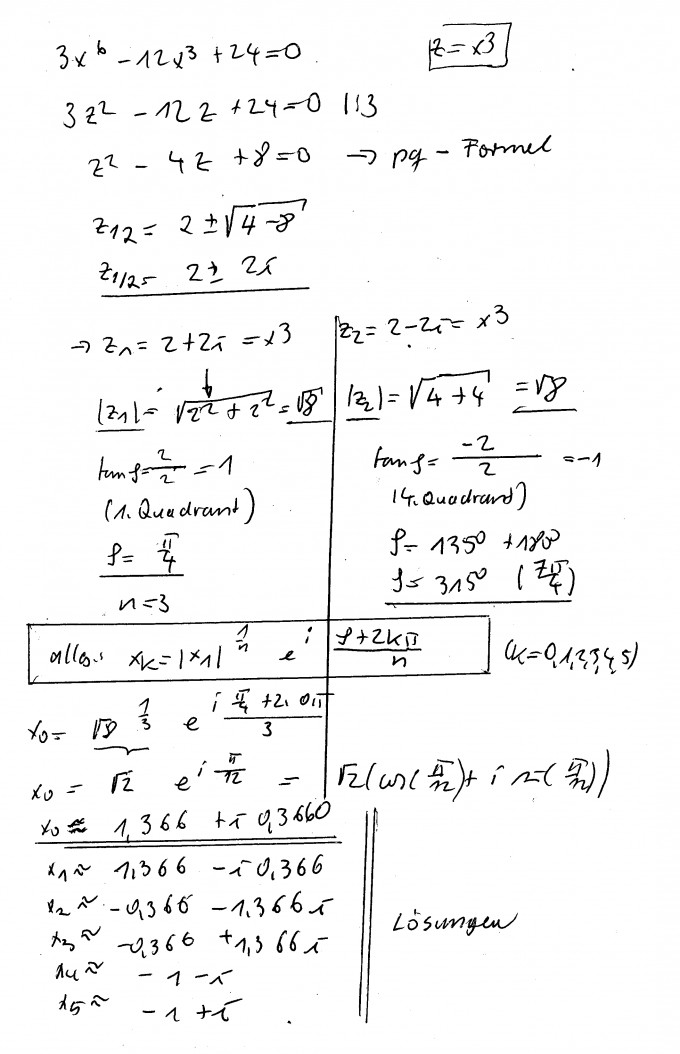 3x⁶ - 12x³ + 24 = 0
z = x3
3z² - 12z + 24 = 0 |:3
z² - 4z + 8 = 0 → pq - Formel
z12 = 2 ± √4-8
z1/2 = 2 ± 2i
→ z1 = 2+2i = x3
|z1| = √2² + 2² = √8
tan φ = 2/2 = 1
(1. Quadrant)
φ = π/4
n = 3
z2 = 2-2i = x3
|z2| = √4+4 = √8
tan φ = -2/2 = -1
(4. Quadrant)
φ = 135° + 180°
φ = 315° (7π/4)
allg.: xk = |x1|^(1/n) e^(i (φ+2kπ)/n) (k=0,1,2,3,4,5)
x0 = √8^(1/3) e^(i (π/4 + 2·0π)/3)
x0 = √2 e^(i π/12) = √2(cos(π/12) + i sin(π/12))
x0 ≈ 1,366 + i 0,3660
x1 ≈ 1,366 - i 0,366
x2 ≈ -0,366 - 1,366 i
x3 ≈ -0,366 + 1,366 i
x4 ≈ -1 - i
x5 ≈ -1 + i
Lösungen